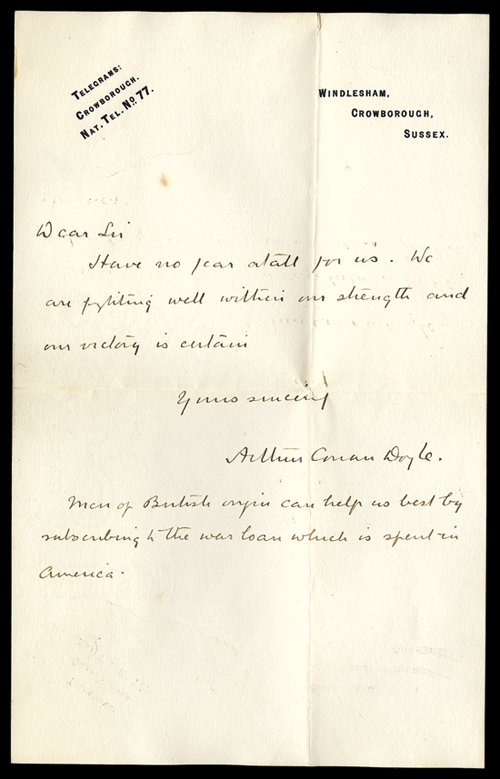 TELEGRAMS:
CROWBOROUGH.
NAT. TEL. NO. 77.
WINDLESHAM,
CROWBOROUGH,
SUSSEX.
Dear Sir
Have no fear atall for us. We
are fighting well within our strength and
our victory is certain
Yours sincerely
Arthur Conan Doyle.
Men of British origin can help us best by
subscribing to the war loan which is spent in
America.